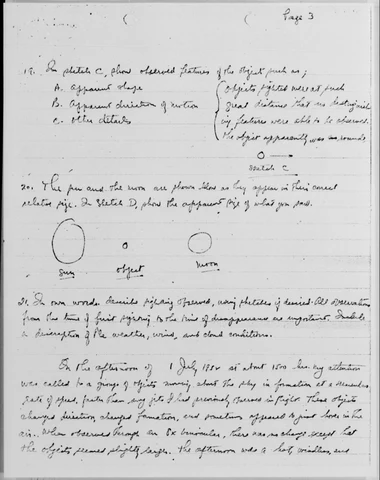 Page 3
19. In sketch C, show observed features of the object such as;
A. Apparent shape
B. Apparent direction of motion
C. Other details
Objects sighted were at such
great distances that no distinguish-
ing features were able to be observed.
The object apparently was round
Sketch C
20. The sun and the moon are shown below as they appear in their correct
relative size. In Sketch D, show the apparent size of what you saw.
Sun
object
Moon
21. In own words describe sighting observed, using sketches if desired. All observations
from the time of first sighting to the time of disappearance are important. Include
a description of the weather, wind, and cloud conditions.
In the afternoon of 1 July 1952 at about 1500 hrs my attention
was called to a group of objects moving about the sky in formation at a tremendous
rate of speed, faster than any jets I had previously observed in flight. These objects
changed direction, changed formation, and sometimes appeared to just hover in the
air. When observed through an 8x binocular, there was no change except that
the objects seemed slightly larger. The afternoon was a hot, windless, and